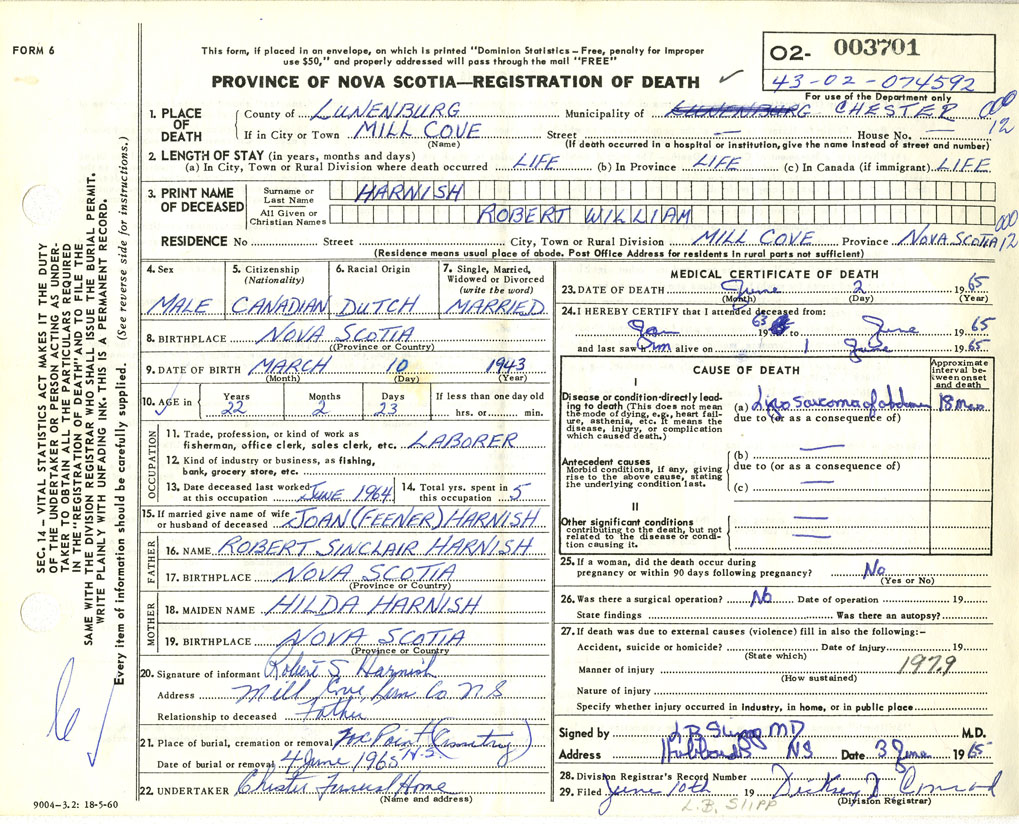 FORM 6
This form, if placed in an envelope, on which is printed "Dominion Statistics – Free, penalty for improper
use $50," and properly addressed will pass through the mail "FREE"
PROVINCE OF NOVA SCOTIA—REGISTRATION OF DEATH
02- 003701
43-02-074592
For use of the Department only
1. PLACE OF DEATH
County of LUNENBURG Municipality of LUNENBURG CHESTER 000 12
If in City or Town MILL COVE Street — House No. —
(Name) (If death occurred in a hospital or institution, give the name instead of street and number)
2. LENGTH OF STAY (in years, months and days)
(a) In City, Town or Rural Division where death occurred LIFE (b) In Province LIFE (c) In Canada (if immigrant) LIFE
3. PRINT NAME OF DECEASED
Surname or Last Name HARNISH
All Given or Christian Names ROBERT WILLIAM
RESIDENCE No. Street City, Town or Rural Division MILL COVE Province NOVA SCOTIA 000 12
(Residence means usual place of abode. Post Office Address for residents in rural parts not sufficient)
4. Sex MALE
5. Citizenship (Nationality) CANADIAN
6. Racial Origin DUTCH
7. Single, Married, Widowed or Divorced (write the word) MARRIED
8. BIRTHPLACE NOVA SCOTIA
(Province or Country)
9. DATE OF BIRTH MARCH 10 1943
(Month) (Day) (Year)
10. AGE in Years Months Days If less than one day old
22 2 23 hrs. or min.
OCCUPATION
11. Trade, profession, or kind of work as
fisherman, office clerk, sales clerk, etc. LABORER
12. Kind of industry or business, as fishing,
bank, grocery store, etc.
13. Date deceased last worked at this occupation JUNE 1964
14. Total yrs. spent in this occupation 5
15. If married give name of wife or husband of deceased JOAN (FEENER) HARNISH
FATHER
16. NAME ROBERT SINCLAIR HARNISH
17. BIRTHPLACE NOVA SCOTIA
(Province or Country)
MOTHER
18. MAIDEN NAME HILDA HARNISH
19. BIRTHPLACE NOVA SCOTIA
(Province or Country)
20. Signature of informant Robert S. Harnish
Address Mill Cove Lun Co. N S
Relationship to deceased Father
21. Place of burial, cremation or removal (Cemetry) N.S.
Date of burial or removal 4 June 1965
22. UNDERTAKER Chester Funeral Home
(Name and address)
9004–3.2: 18-5-60
MEDICAL CERTIFICATE OF DEATH
23. DATE OF DEATH June 2 1965
(Month) (Day) (Year)
24. I HEREBY CERTIFY that I attended deceased from:
Jan 1963 to June 1965
and last saw him alive on 1 June 1965
CAUSE OF DEATH
Approximate interval between onset and death
I
Disease or condition directly leading to death (This does not mean
the mode of dying, e.g., heart failure, asthenia, etc. It means the
disease, injury, or complication
which caused death.)
(a) Lipo sarcoma of abdomen 18 mos
due to (or as a consequence of)
Antecedent causes
Morbid conditions, if any, giving
rise to the above cause, stating
the underlying condition last.
(b) —
due to (or as a consequence of)
(c) —
II
Other significant conditions
contributing to the death, but not
related to the disease or condition causing it.
25. If a woman, did the death occur during
pregnancy or within 90 days following pregnancy? No
(Yes or No)
26. Was there a surgical operation? No Date of operation 19
State findings Was there an autopsy?
27. If death was due to external causes (violence) fill in also the following:–
Accident, suicide or homicide? Date of injury 19
(State which)
Manner of injury 197.9
(How sustained)
Nature of injury
Specify whether injury occurred in industry, in home, or in public place
Signed by L B Slipp MD M.D.
Address Hubbards NS Date 3 June 1965
28. Division Registrar's Record Number
29. Filed June 10th 19 Conrad
(Division Registrar)
L.B. SLIPP
SEC. 14 – VITAL STATISTICS ACT MAKES IT THE DUTY
OF THE UNDERTAKER OR PERSON ACTING AS UNDER-
TAKER TO OBTAIN ALL THE PARTICULARS REQUIRED
IN THE "REGISTRATION OF DEATH" AND TO FILE THE
SAME WITH THE DIVISION REGISTRAR WHO SHALL ISSUE THE BURIAL PERMIT.
WRITE PLAINLY WITH UNFADING INK. THIS IS A PERMANENT RECORD.
Every item of information should be carefully supplied. (See reverse side for instructions.)